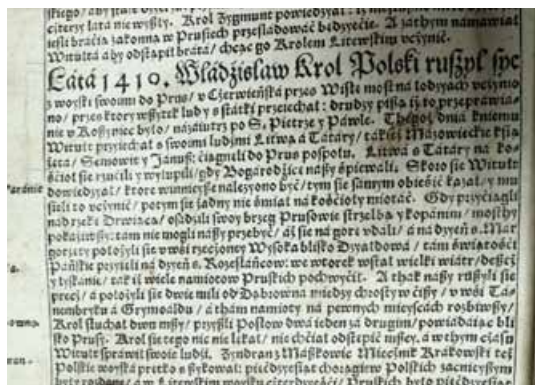 skiego / aby
cztery lata nie wyszły. Krol Zygmunt powiedzyał /
iesli bracia zakonna w Prusiech prześladować będzyecie. A zathym namawiał
Witulta aby odstąpił brata / chcąc go Krolem Litewskim vczynić.
Lata 1410. Władzisław Krol Polski ruszył sye
z woyski swoimi do Prus / v Czerwieńska przez Wisłę most na łodzyach vczynio
no / przez ktory wszytek lud y s statki przeiechał: drudzy piszą iż to przeprawia-
nie v Kozyenic było / nazaiutrz po S. Pietrze y Pawle. Thegoż dnia kniemu
Witult przyiechał s swoimi ludźmi Litwą a Tatary / takież Mázowieckie ksią
żęta / Semowit y Janusz: ciągnęli do Prus pospołu. Litwa s Tatary na ko-
ścioł sie rzucili y wyłupili / gdy Bogarodzice naszy śpiewali. Skoro sie Witult
dowiedzyał / ktore winnieysze nalezyono być / tym sie samym obiesić kazał / y mu
sieli to vczynić / potym sie żadny nie śmiał na kościoły miotać. Gdy przyciągli
nad rzekę Drwiąca / osadzili swoy brzeg Prusowie strzelbą y kopanim / mostby
pokaziwszy: tam nie mogli naszy przebyć / aż sie na gorę vdali / a na dzyeń s. Mar
gorzety położyli sie v wsi rzeczoney Wysoka blisko Dzyałdowa / tam świątości
Pańskie przyięli na dzyeń s. Rozesłańcow: we wtorek wstał wielki wiatr / deszcz
y łyskanie / tak iż wiele namiotow Pruskich pochwycił. A thak naszy ruszyli sie
precz / a położyli sie dwie mili od Dąbrowna miedzy chrosty w ciszy / v wsi Ta-
nembryku a Grynwaldu / a tham namioty na pewnych mieyscach rozbiwszy /
Krol słuchał dwu mszy / przyszli Posłow dwa ieden za drugim / powiadaiąc bli
sko Prusy. Krol sie tego nic nie lękał / nie chciał odstąpić mszey. a w thym czasu
Witult sprawił swoie ludzi. Zyndran z Maszkowic Miecznik Krakowski też
Polskie woyska prętko s szykował: pięćdzyesiąt chorągiew Polskich zacnieyszym
było rozdane / a w Litewskim woysku czterdzyeści / Pruskich było pięćdzyesiąt